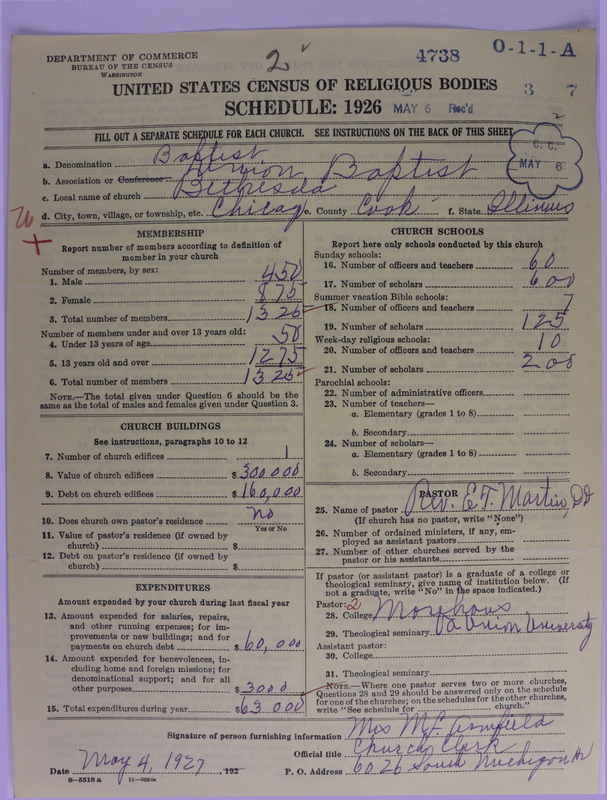 DEPARTMENT OF COMMERCE
BUREAU OF THE CENSUS
WASHINGTON
2
4738
O-1-1-A
UNITED STATES CENSUS OF RELIGIOUS BODIES
3 7
SCHEDULE: 1926
MAY 6 Rec'd
FILL OUT A SEPARATE SCHEDULE FOR EACH CHURCH. SEE INSTRUCTIONS ON THE BACK OF THIS SHEET
C. C.
MAY 6
a. Denomination Baptist
b. Association or Conference Union Baptist
c. Local name of church Bethesda
d. City, town, village, or township, etc. Chicago e. County Cook f. State Illinois
MEMBERSHIP
Report number of members according to definition of member in your church
Number of members, by sex:
1. Male 450
2. Female 875
3. Total number of members 1325
Number of members under and over 13 years old:
4. Under 13 years of age 50
5. 13 years old and over 1275
6. Total number of members 1325
NOTE.—The total given under Question 6 should be the same as the total of males and females given under Question 3.
CHURCH BUILDINGS
See instructions, paragraphs 10 to 12
7. Number of church edifices 1
8. Value of church edifices $300000
9. Debt on church edifices $160,000
10. Does church own pastor's residence no
Yes or No
11. Value of pastor's residence (if owned by church) $
12. Debt on pastor's residence (if owned by church) $
EXPENDITURES
Amount expended by your church during last fiscal year
13. Amount expended for salaries, repairs, and other running expenses; for improvements or new buildings; and for payments on church debt $60,000
14. Amount expended for benevolences, including home and foreign missions; for denominational support; and for all other purposes $3000
15. Total expenditures during year $63000
CHURCH SCHOOLS
Report here only schools conducted by this church
Sunday schools:
16. Number of officers and teachers 60
17. Number of scholars 600
Summer vacation Bible schools:
18. Number of officers and teachers 7
19. Number of scholars 125
Week-day religious schools:
20. Number of officers and teachers 10
21. Number of scholars 200
Parochial schools:
22. Number of administrative officers
23. Number of teachers—
a. Elementary (grades 1 to 8)
b. Secondary
24. Number of scholars—
a. Elementary (grades 1 to 8)
b. Secondary
PASTOR
25. Name of pastor Rev. E.T. Martin, DD
(If church has no pastor, write "None")
26. Number of ordained ministers, if any, employed as assistant pastors
27. Number of other churches served by the pastor or his assistants
If pastor (or assistant pastor) is a graduate of a college or theological seminary, give name of institution below. (If not a graduate, write "No" in the space indicated.)
Pastor: 2
28. College Morehous
29. Theological seminary Va Union University
Assistant pastor:
30. College
31. Theological seminary
NOTE.—Where one pastor serves two or more churches, Questions 28 and 29 should be answered only on the schedule for one of the churches; on the schedules for the other churches, write "See schedule for church."
Signature of person furnishing information Mrs M.L. Armfield
Official title Church Clerk
Date May 4, 1927, 192
P. O. Address 6026 South Michigan Av
8-5518 a